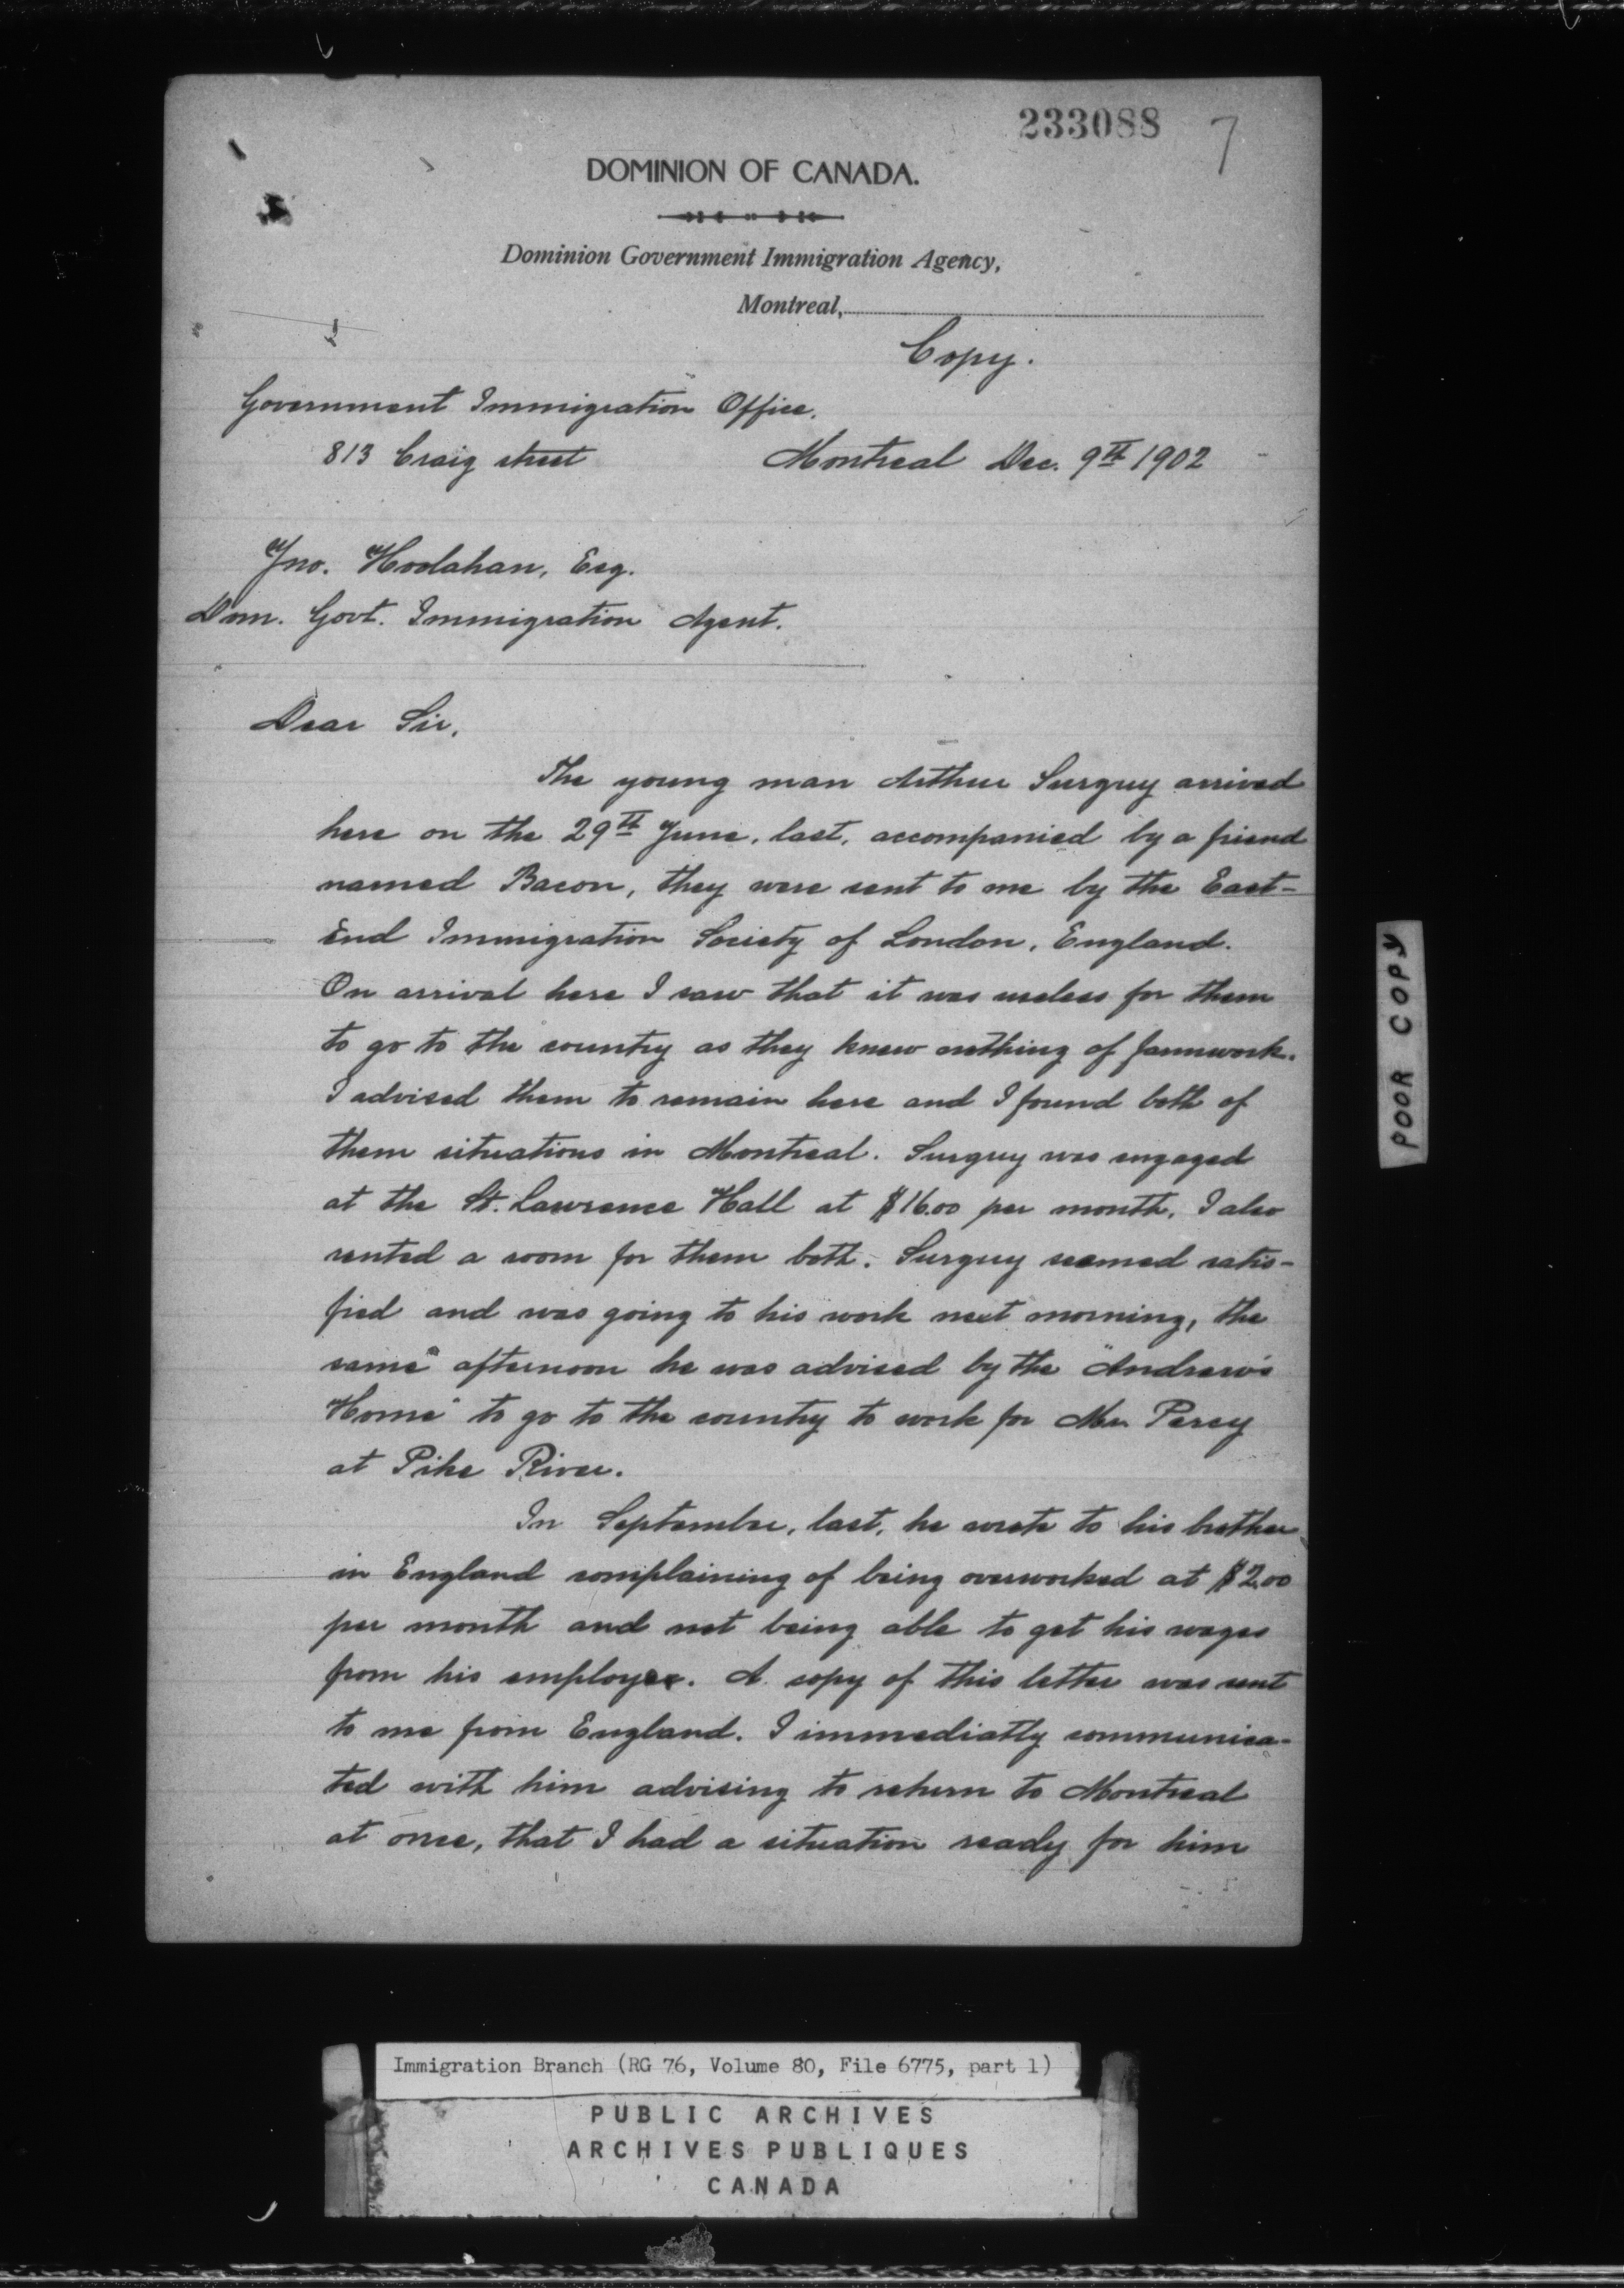 233088 7
DOMINION OF CANADA.
Dominion Government Immigration Agency,
Montreal,
Copy.
Government Immigration Office.
813 Craig street Montreal Dec. 9th 1902
Jno. Hoolahan, Esq.
Dom. Govt. Immigration Agent.
Dear Sir,
The young man Arthur Surguy arrived
here on the 29th June, last, accompanied by a friend
named Bacon, they were sent to me by the East-
End Immigration Society of London, England.
On arrival here I saw that it was useless for them
to go to the country as they knew nothing of farmwork.
I advised them to remain here and I found both of
them situations in Montreal. Surguy was engaged
at the St. Lawrence Hall at $16.00 per month, I also
rented a room for them both. Surguy seemed satis-
fied and was going to his work next morning, the
same afternoon he was advised by the "Andrew's
Home" to go to the country to work for Mr. Percy
at Pike River.
In September, last, he wrote to his brother
in England complaining of being overworked at $2.00
per month and not being able to get his wages
from his employer. A copy of this letter was sent
to me from England. I immediatly communica-
ted with him advising to return to Montreal
at once, that I had a situation ready for him
POOR COPY
Immigration Branch (RG 76, Volume 80, File 6775, part 1)
PUBLIC ARCHIVES
ARCHIVES PUBLIQUES
CANADA